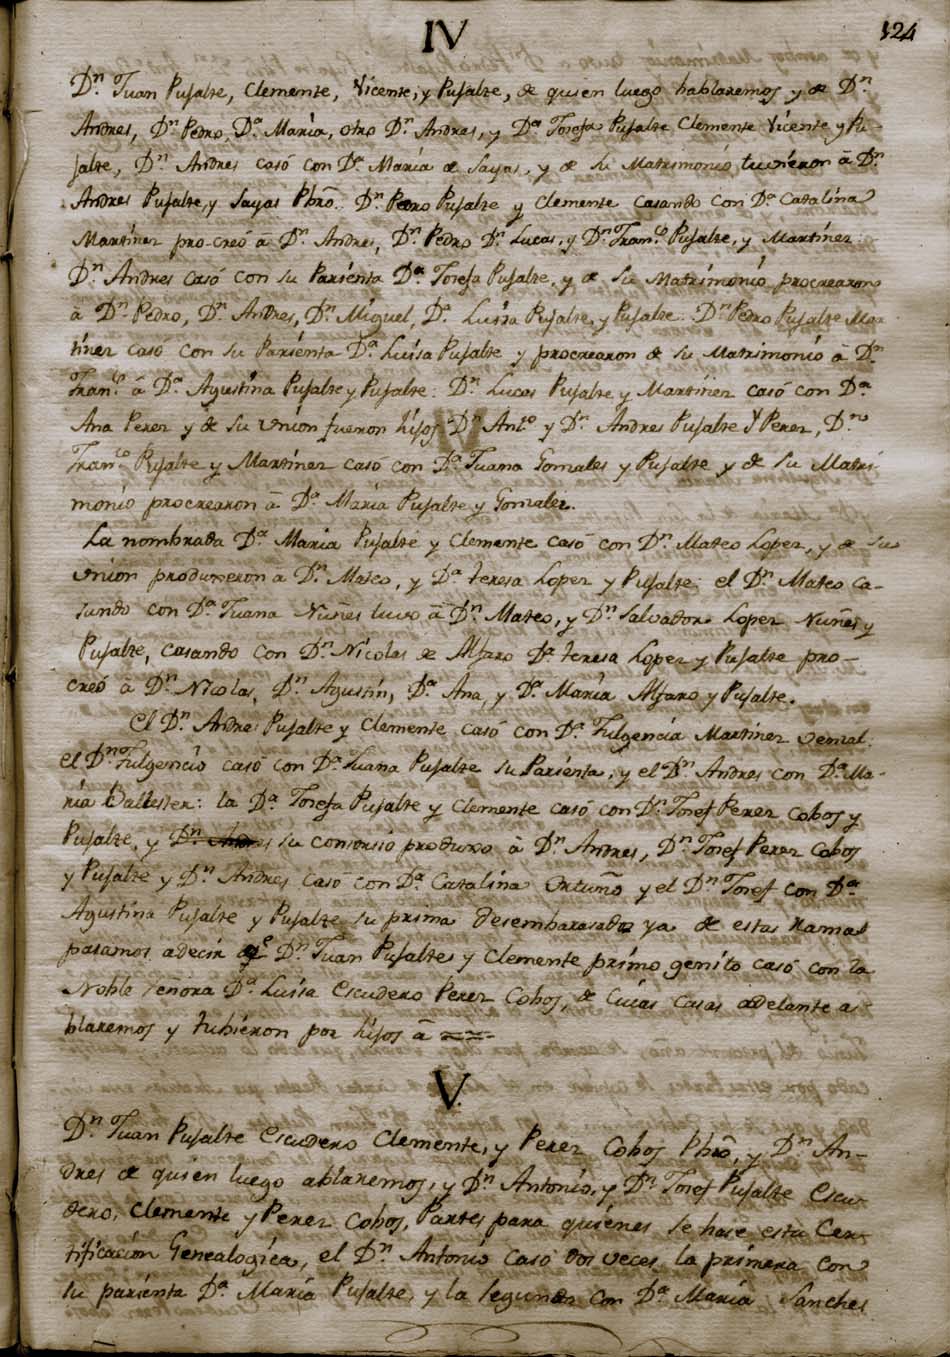 IV
124
Dn. Juan Pujalte, Clemente, Vicente, y Pujalte, de quien luego hablaremos y de Dn.
Andres, Dn. Pedro, Da. Maria, otro Dn. Andres, y Da. Josefa Pujalte Clemente Vicente y Pu-
jalte, Dn. Andres casó con Da. Maria de Sayas, y de su Matrimonio tuvieron â Dn.
Andres Pujalte, y Sayas Pbro. Dn. Pedro Pujalte y Clemente casando con Da. Catalina
Martinez pro-creó â Dn. Andres, Dn. Pedro Dn. Lucas, y Dn. Franco. Pujalte, y Martinez:
Dn. Andres casó con su Parienta Da. Josefa Pujalte, y de su Matrimonio procrearon
â Dn. Pedro, Dn. Andres, Dn. Miguel, Da. Luisa Pujalte, y Pujalte: Dn. Pedro Pujalte Mar
tinez casó con su Parienta Da. Luisa Pujalte y procrearon de su Matrimonio â Dn.
Franco. â Da. Agustina Pujalte y Pujalte: Dn. Lucas Pujalte y Martinez casó con Da.
Ana Perez y de su union fueron hijos Dn. Anto. y Dn. Andres Pujalte y Perez, Dn.
Franco. Pujalte y Martinez casó con Da. Juana Gonzales y Pujalte y de su Matri-
monio procrearon â Da. Maria Pujalte y Gonzalez.
La nombrada Da. Maria Pujalte y Clemente casó con Dn. Mateo Lopez, y de su
union produxeron a Dn. Mateo, y Da. teresa Lopez y Pujalte: el Dn. Mateo ca-
sando con Da. Juana Nuñes tuvo â Dn. Mateo, y Dn. Salvador Lopez Nuñes y
Pujalte, casando con Dn. Nicolas de Alfaro Da. teresa Lopez y Pujalte pro-
creó â Dn. Nicolas, Dn. Agustin, Da. Ana, y Da. Maria Alfaro y Pujalte.
El Dn. Andres Pujalte y Clemente casó con Da. Fulgencia Martinez
el Dn. Fulgencio casó con Da. Juana Pujalte su Parienta, y el Dn. Andres con Da. Ma-
ria Ballester: la Da. Josefa Pujalte y Clemente casó con Dn. Josef Perez Cobos y
Pujalte, y Dn. Andres su consorsio produxo â Dn. Andres, Dn. Josef Perez Cobos
y Pujalte y Dn. Andres casó con Da. Catalina Ortuño y el Dn. Josef con Da.
Agustina Pujalte y Pujalte su prima desembarasados ya de estas Ramas
pasamos a decir qe. Dn. Juan Pujalte y Clemente primo genito casó con la
Noble señora Da. Luisa Escudero Perez Cobos, de cuias casas adelante a
blaremos y tubieron por hijos â
V.
Dn. Juan Pujalte Escudero Clemente, y Perez Cobos Pbro, y Dn. An-
dres de quien luego ablaremos, y Dn. Antonio, y Dn. Josef Pujalte Escu-
dero, Clemente y Perez Cobos, Partes para quienes se hase esta Cer-
tificacion Genealogica, el Dn. Antonio casó dos veces la primera con
su parienta Da. Maria Pujalte, y la segunda con Da. Maria Sanches